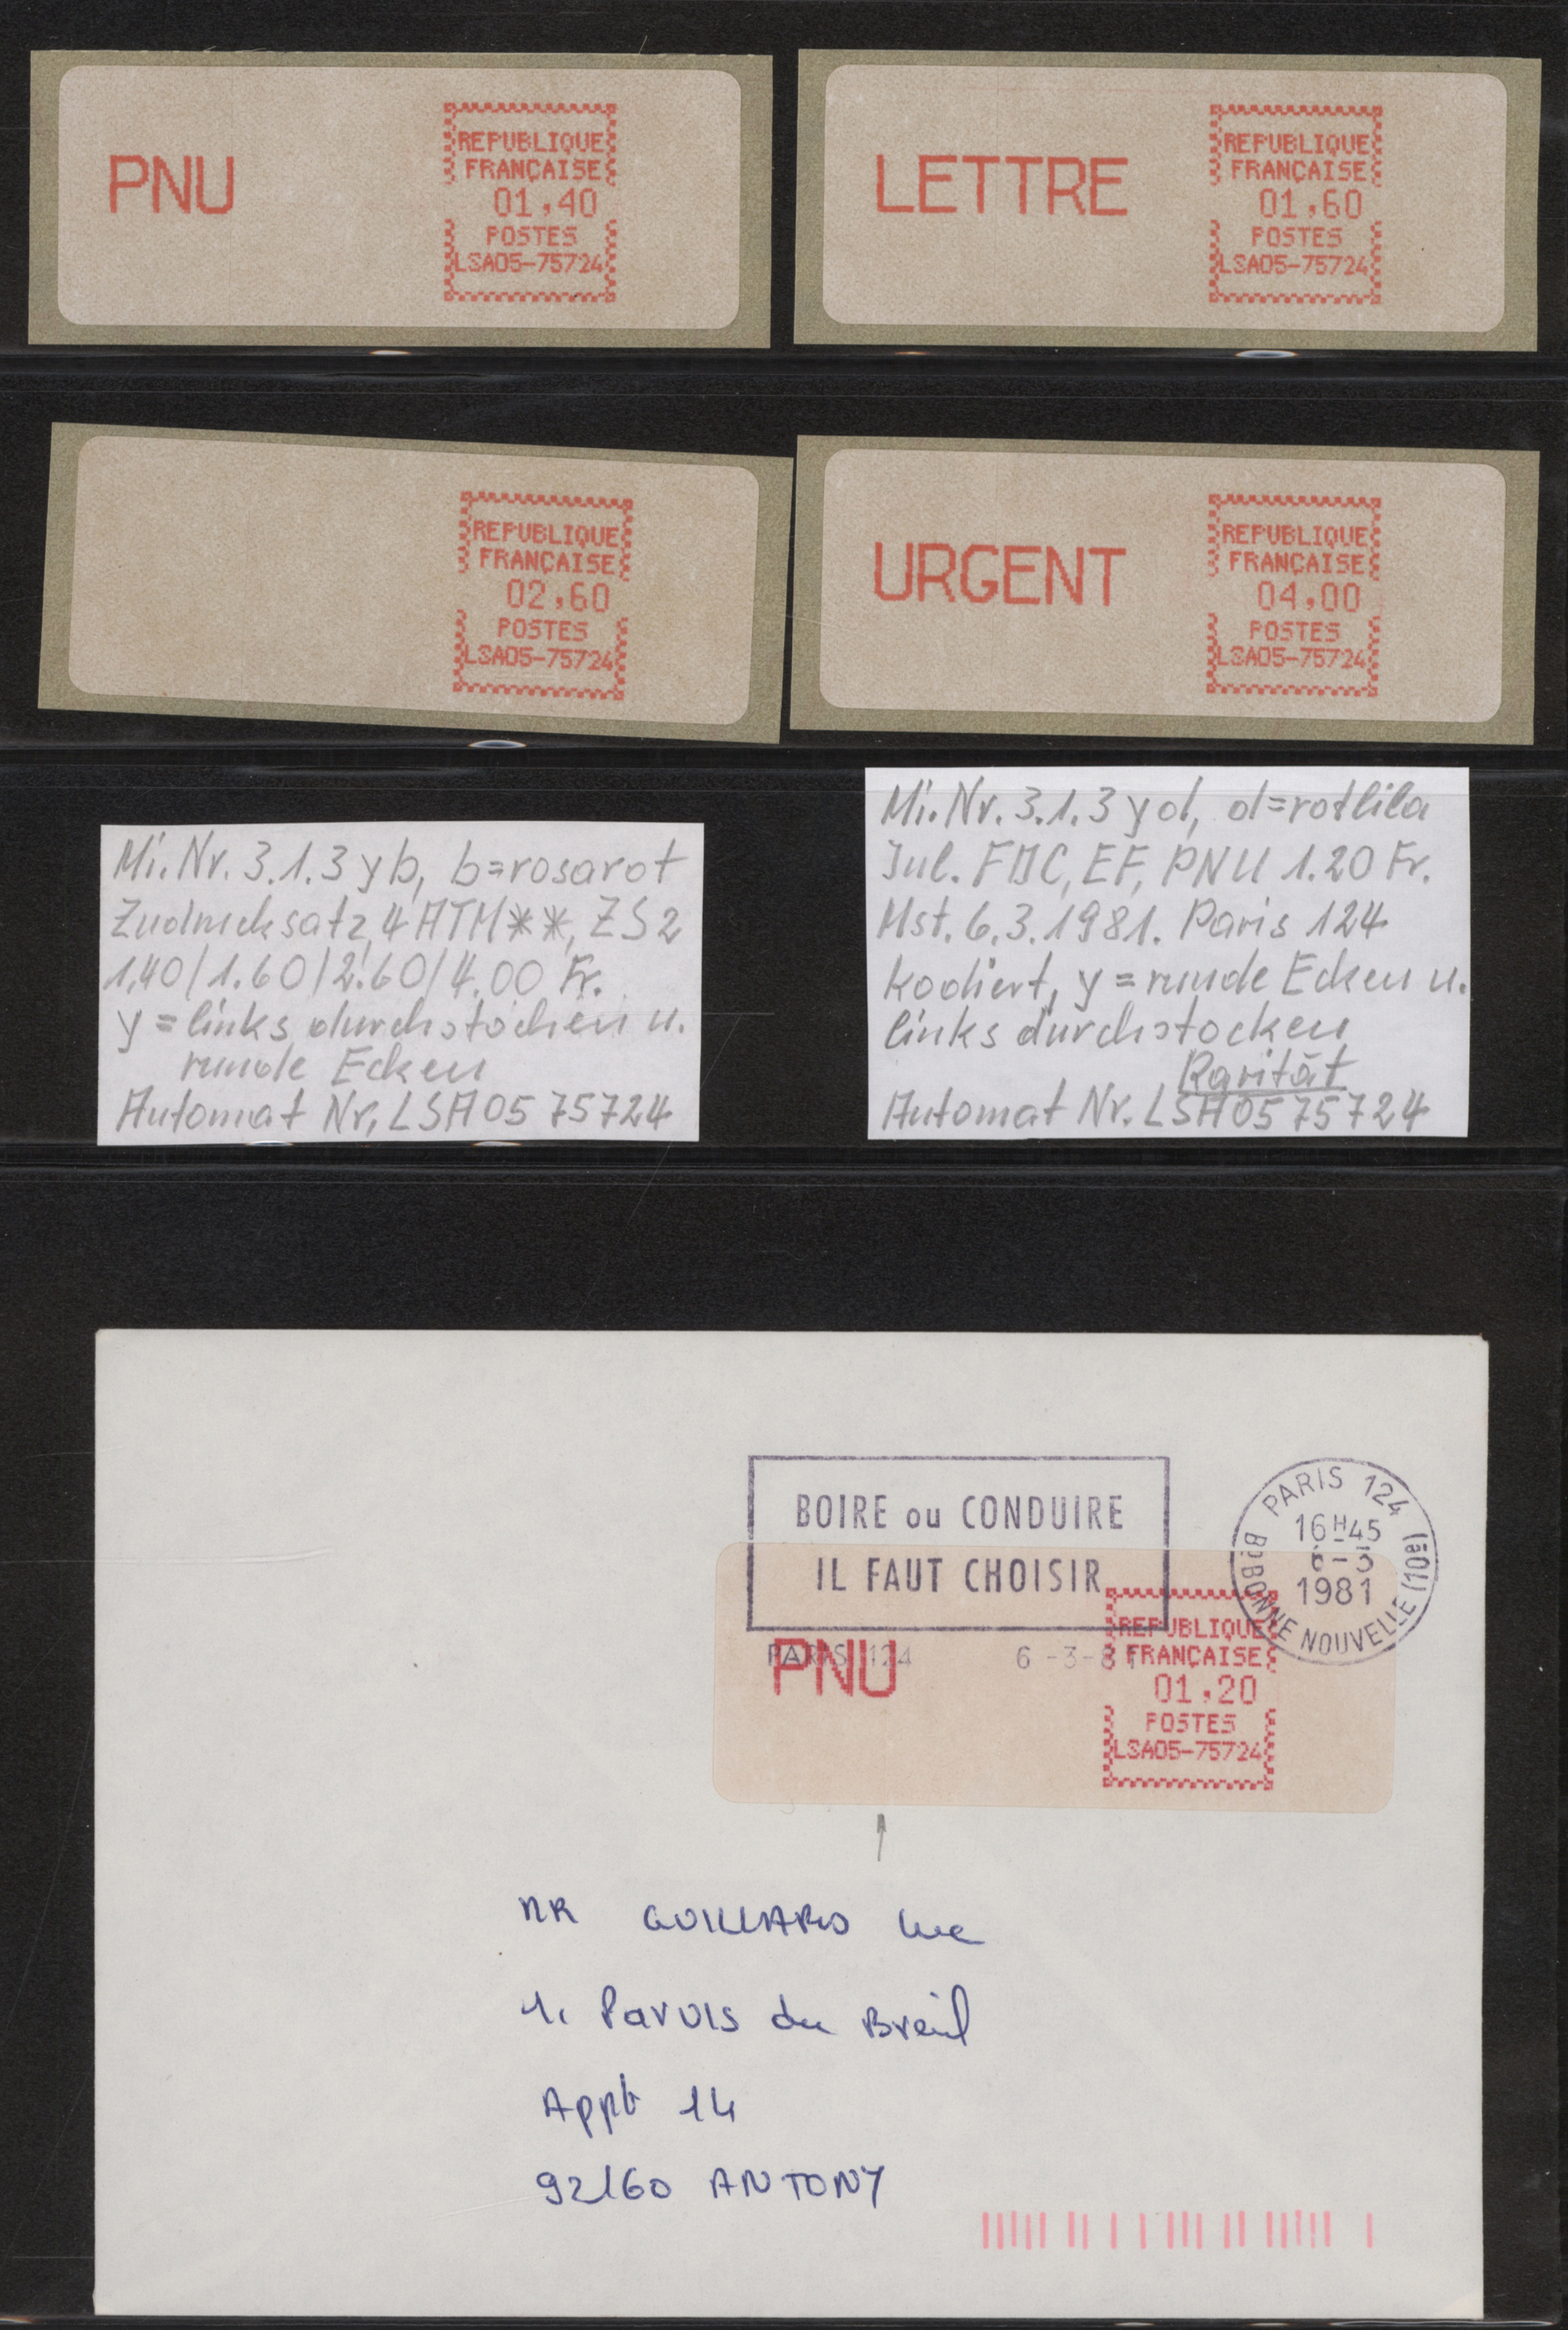 PNU
REPUBLIQUE
FRANÇAISE
01,40
POSTES
LSA05-75724
LETTRE
REPUBLIQUE
FRANÇAISE
01,60
POSTES
LSA05-75724
REPUBLIQUE
FRANÇAISE
02,60
POSTES
LSA05-75724
URGENT
REPUBLIQUE
FRANÇAISE
04,00
POSTES
LSA05-75724
Mi.Nr. 3.1.3 yb, b=rosarot
Zudrucksatz, 4 ATM**, ZS2
1.40/1.60/2.60/4.00 Fr.
y = links durchstochen u.
runde Ecken
Automat Nr. LSA05 75724
Mi.Nr. 3.1.3 yd, d=rotlila
Jul. FDC, EF, PNU 1.20 Fr.
Mst. 6.3.1981. Paris 124
kodiert, y = runde Ecken u.
links durchstocken
Rarität
Automat Nr. LSA05 75724
BOIRE ou CONDUIRE
IL FAUT CHOISIR
PARIS 124 6-3-81
PARIS 124
16H45
6-3
1981
Bd BONNE NOUVELLE (10e)
PNU
REPUBLIQUE
FRANÇAISE
01,20
POSTES
LSA05-75724
MR GUILLARD Luc
1. Parvis du Breuil
Appt 14
92160 ANTONY